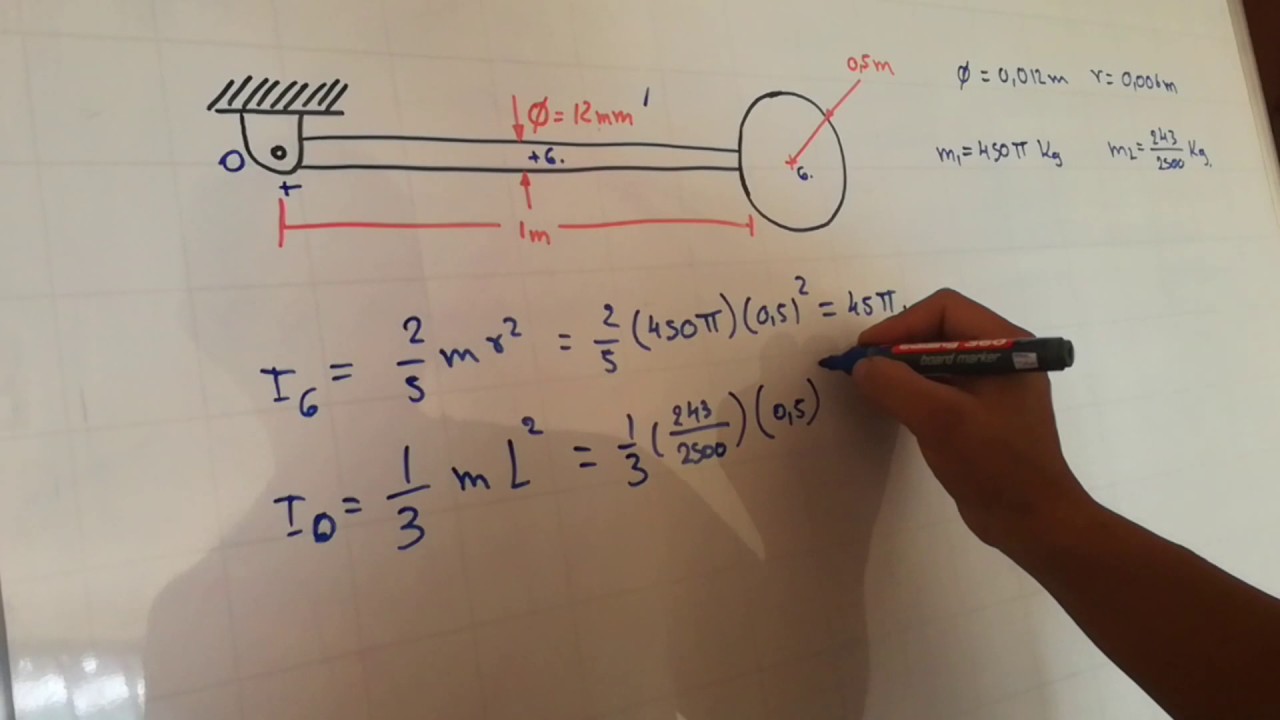 0,5m
Ø = 0,012m r = 0,006m
Ø = 12mm
m₁ = 450π Kg m₂ = 243/2500 Kg.
O
+G.
+G.
+
1m
I_G = 2/5 m r² = 2/5 (450π)(0,5)² = 45π.
I_O = 1/3 m L² = 1/3 (243/2500)(0,5)
board marker